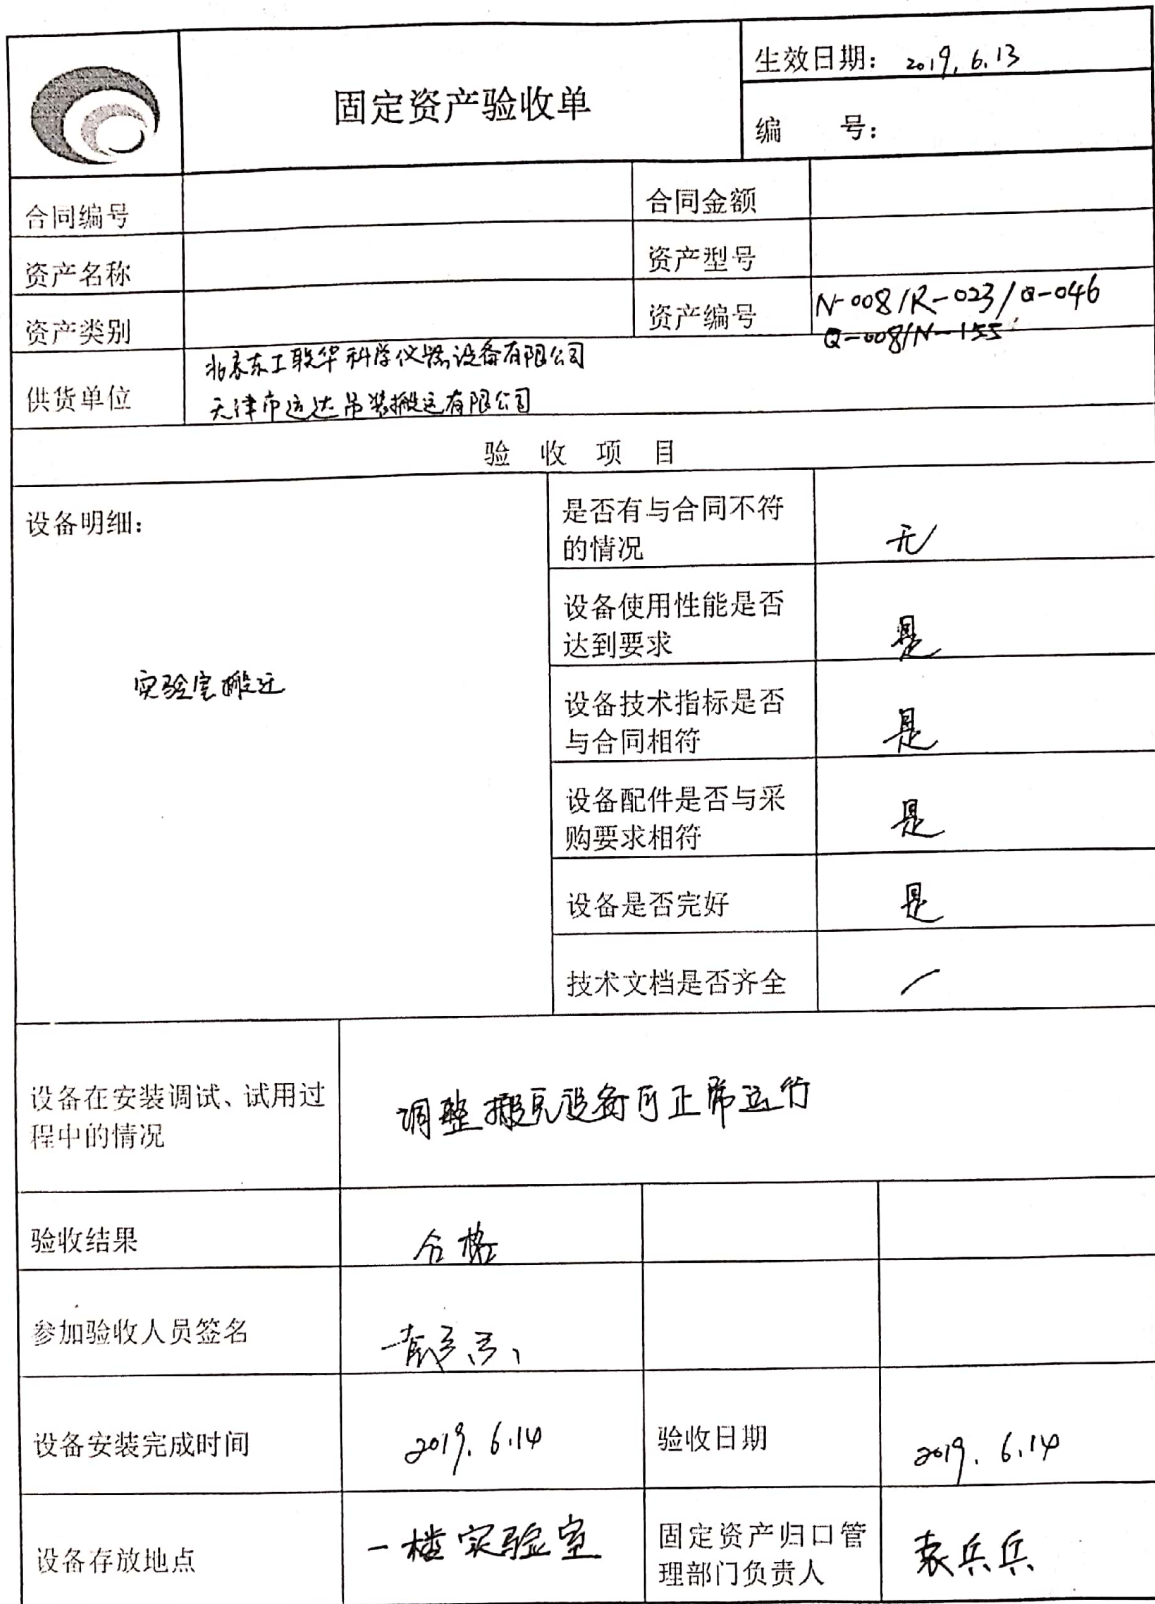 生效日期： 2019. 6.13
固定资产验收单
编 号：
合同编号 合同金额
资产名称 资产型号
资产类别 资产编号 N-008/R-023/Q-046
Q-008/N-155
北京东工联华科学仪器设备有限公司
供货单位
天津市运达吊装搬运有限公司
验 收 项 目
设备明细：
实验室搬迁
是否有与合同不符
的情况 无
设备使用性能是否
达到要求 是
设备技术指标是否
与合同相符 是
设备配件是否与采
购要求相符 是
设备是否完好 是
技术文档是否齐全 /
设备在安装调试、试用过
程中的情况
调整搬完设备可正常运行
验收结果 合格
参加验收人员签名
设备安装完成时间 2019. 6.14 验收日期 2019. 6.14
设备存放地点 一楼实验室
固定资产归口管
理部门负责人 袁兵兵